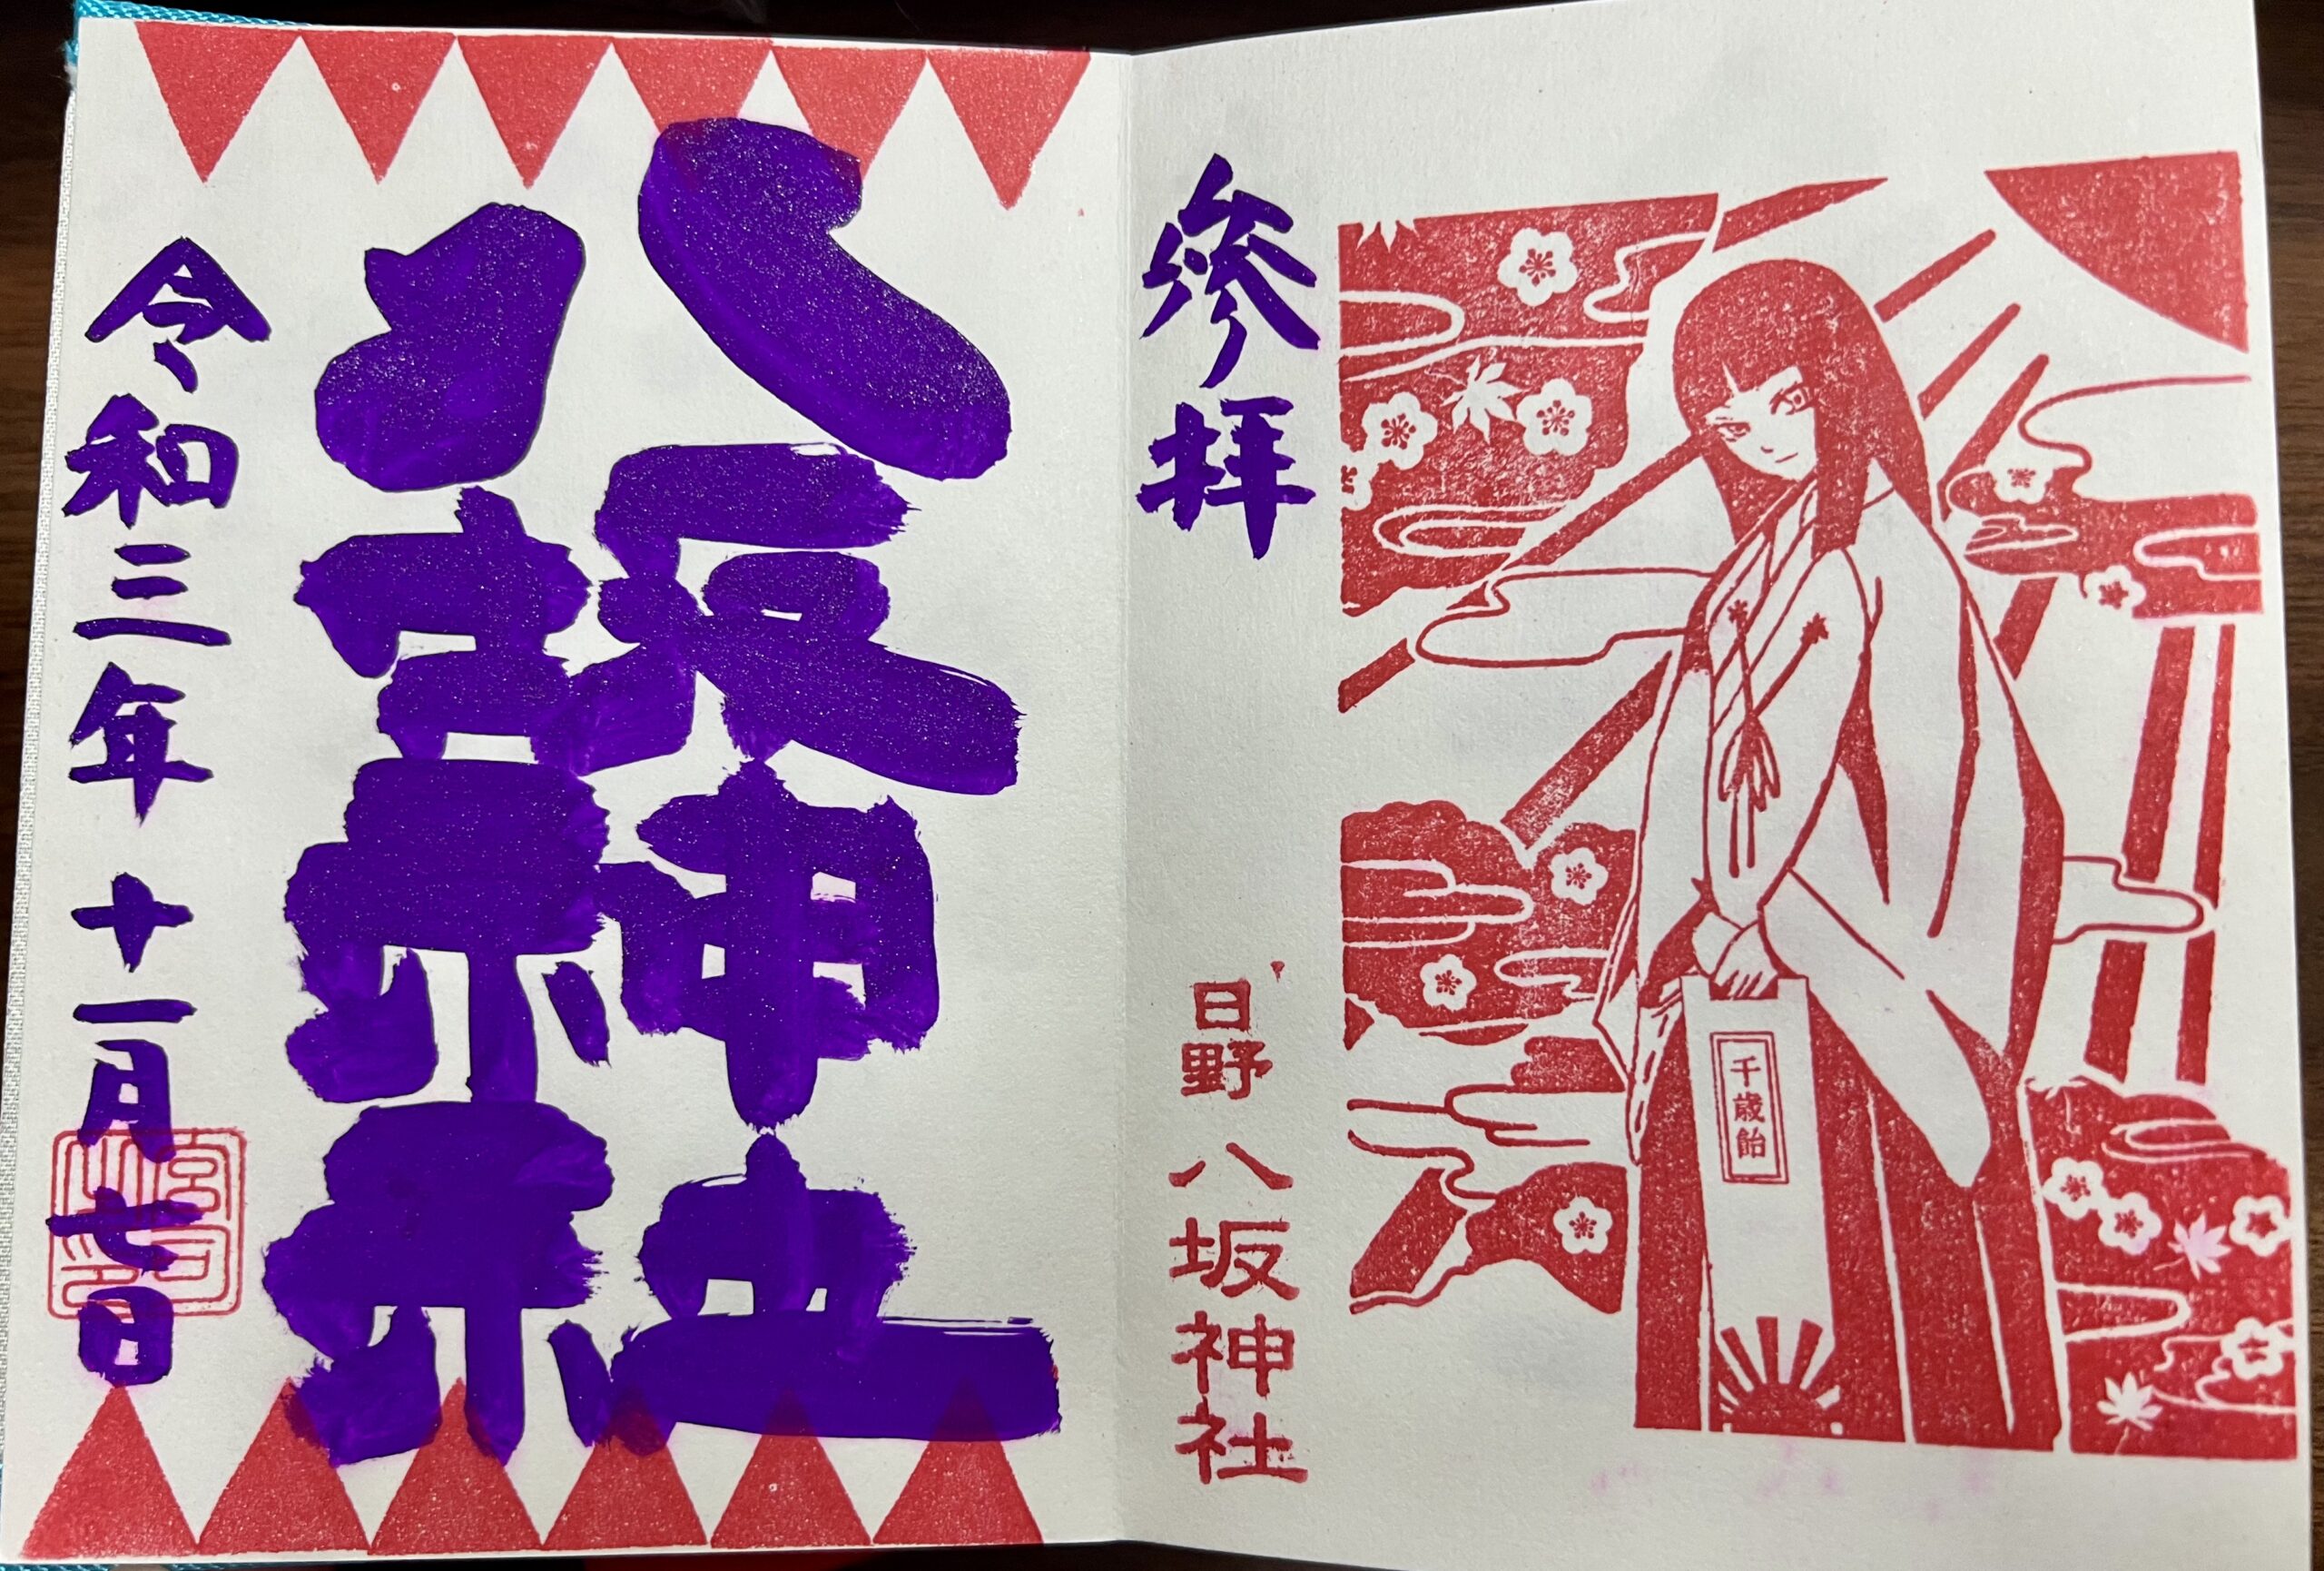 参拝
千歳飴
日野 八坂神社
八坂神社
令和三年十一月七日